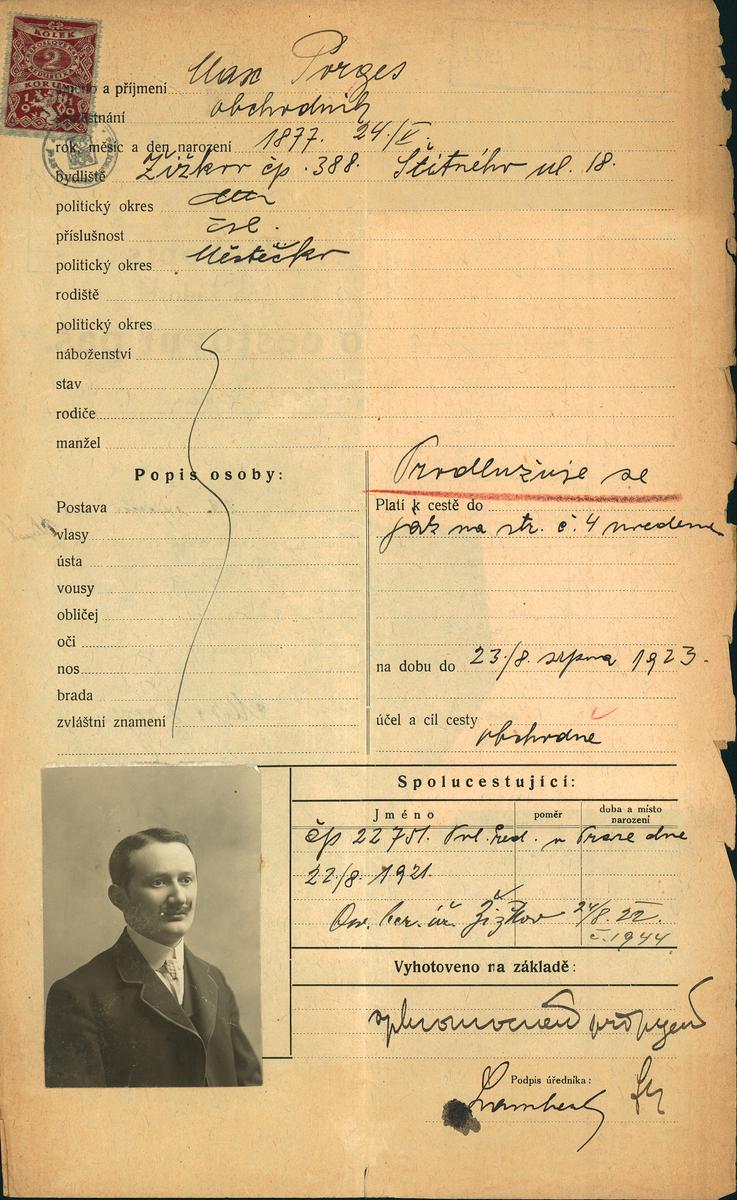 KOLEK
2
KORUNY
1919
a příjmení Max Porges
obchodník
rok, měsíc a den narození 1877. 24./V.
bydliště Žižkov čp. 388. Štítného ul. 18.
politický okres
příslušnost čsl.
politický okres Městečko
rodiště
politický okres
náboženství
stav
rodiče
manžel
Popis osoby:
Postava
vlasy
ústa
vousy
obličej
oči
nos
brada
zvláštní znamení
Prodlužuje se
Platí k cestě do
jak na str. č. 4 uvedeno
na dobu do 23./8. srpna 1923.
účel a cíl cesty
obchodně
Spolucestující:
Jméno
poměr
doba a místo narození
čp 22751. Pol. řed. v Praze dne
22./8. 1921.
ber. úř. Žižkov 24/8. 22.
č. 1944
Vyhotoveno na základě:
Podpis úředníka: